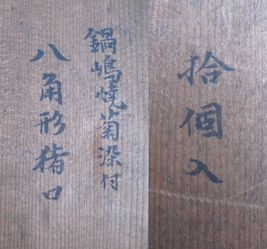 鍋嶋焼菊染付
八角形猪口
拾個入